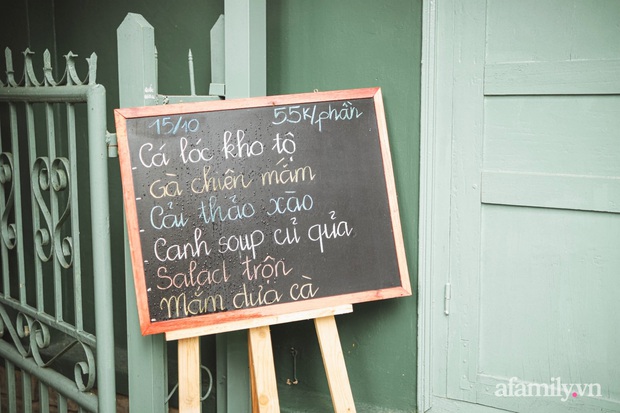 15/10 55K/phần
Cá lóc kho tộ
Gà chiên mắm
Cải thảo xào
Canh soup củ quả
Salad trộn
Mắm dưa cà
afamily.vn